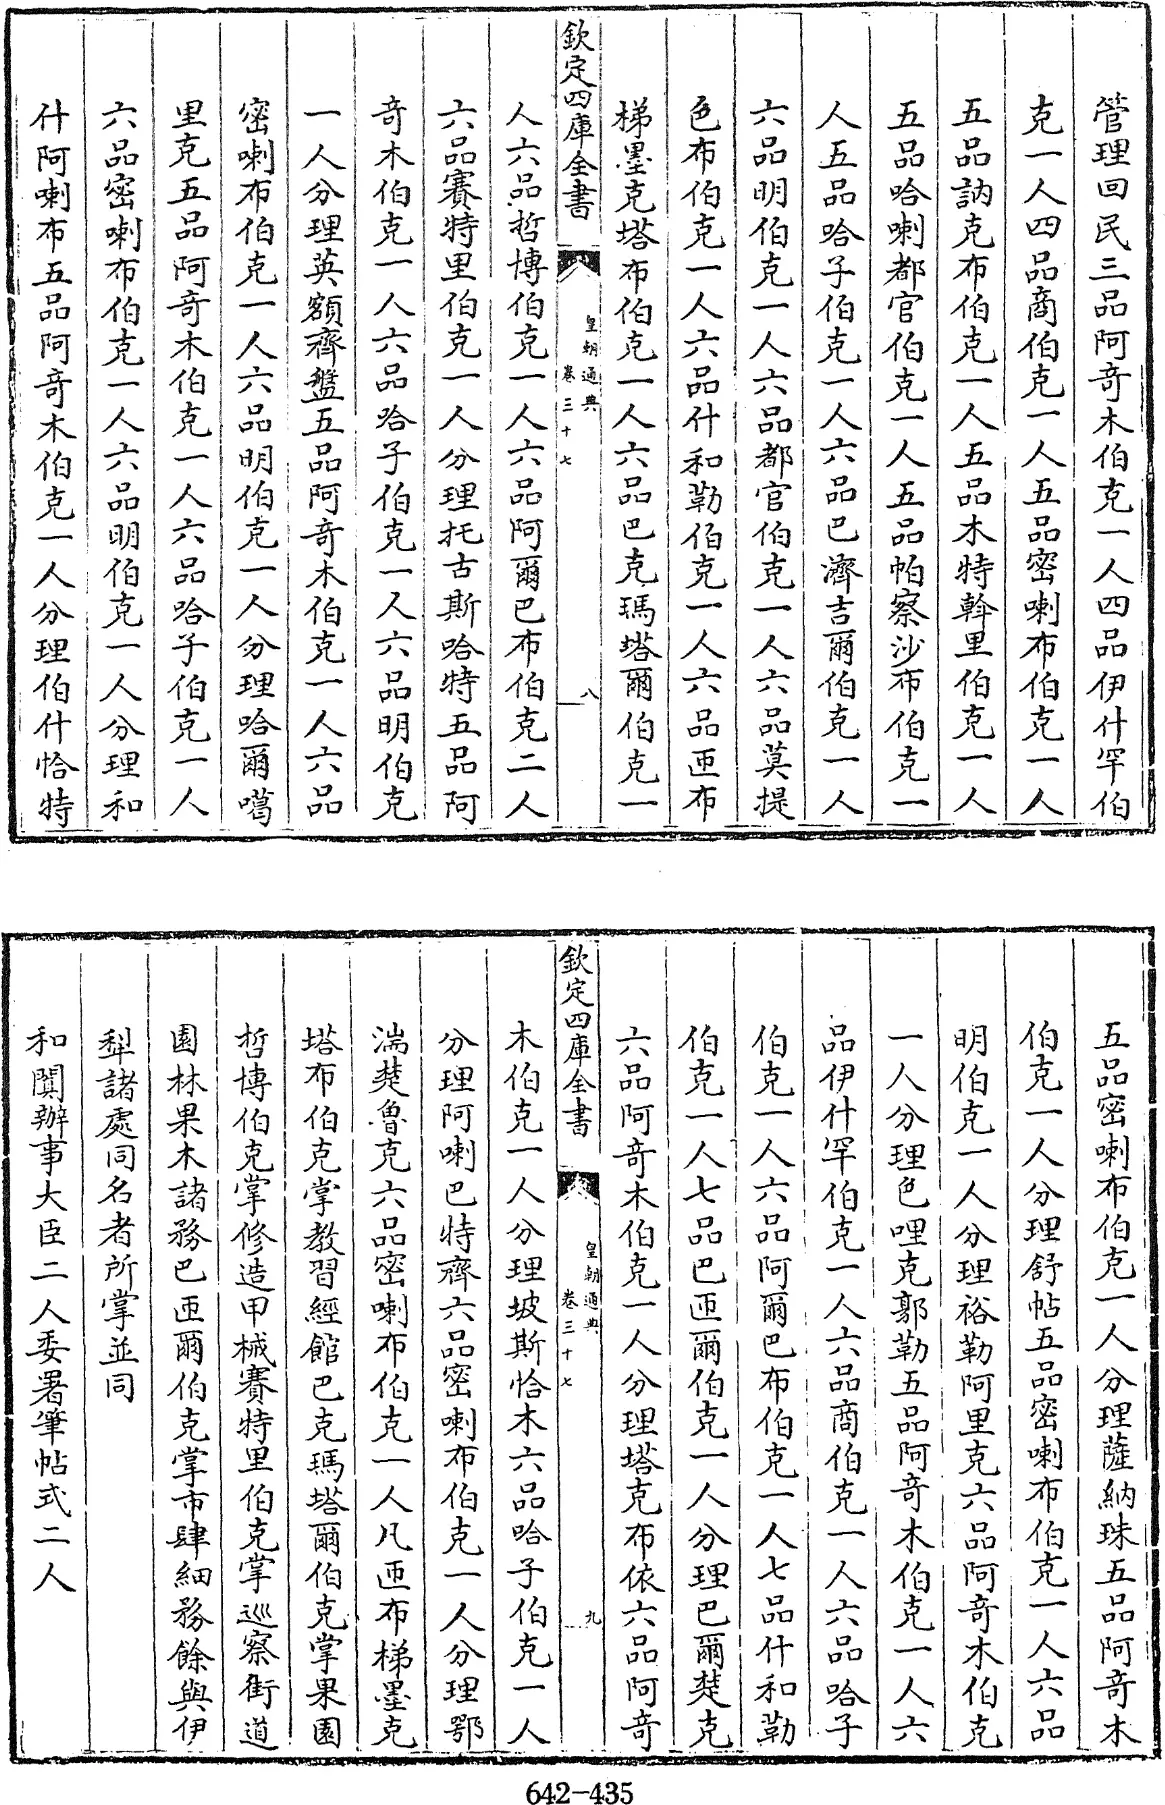 管理回民三品阿奇木伯克一人四品伊什罕伯
克一人四品商伯克一人五品密喇布伯克一人
五品訥克布伯克一人五品木特斡里伯克一人
五品哈喇都官伯克一人五品帕察沙布伯克一
人五品哈子伯克一人六品巴濟吉爾伯克一人
六品明伯克一人六品都官伯克一人六品莫提
色布伯克一人六品什和勒伯克一人六品匝布
梯墨克塔布伯克一人六品巴克瑪塔爾伯克一
欽定四庫全書
皇朝通典
卷三十七
八
人六品哲博伯克一人六品阿爾巴布伯克二人
六品賽特里伯克一人分理托古斯哈特五品阿
奇木伯克一人六品哈子伯克一人六品明伯克
一人分理英額齊盤五品阿奇木伯克一人六品
密喇布伯克一人六品明伯克一人分理哈爾噶
里克五品阿奇木伯克一人六品哈子伯克一人
六品密喇布伯克一人六品明伯克一人分理和
什阿喇布五品阿奇木伯克一人分理伯什恰特
五品密喇布伯克一人分理薩納珠五品阿奇木
伯克一人分理舒帖五品密喇布伯克一人六品
明伯克一人分理裕勒阿里克六品阿奇木伯克
一人分理色哩克郭勒五品阿奇木伯克一人六
品伊什罕伯克一人六品商伯克一人六品哈子
伯克一人六品阿爾巴布伯克一人七品什和勒
伯克一人七品巴匝爾伯克一人分理巴爾楚克
六品阿奇木伯克一人分理塔克布依六品阿奇
欽定四庫全書
皇朝通典
卷三十七
九
木伯克一人分理坡斯恰木六品哈子伯克一人
分理阿喇巴特齊六品密喇布伯克一人分理鄂
湍楚魯克六品密喇布伯克一人凡匝布梯墨克
塔布伯克掌教習經館巴克瑪塔爾伯克掌果園
哲博伯克掌修造甲械賽特里伯克掌巡察街道
園林果木諸務巴匝爾伯克掌市肆細務餘與伊
犂諸處同名者所掌並同
和闐辦事大臣二人委署筆帖式二人
642-435